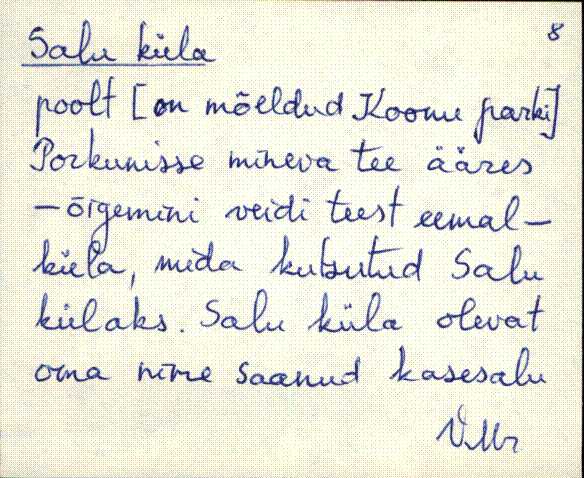 8
Salu küla
poolt [on mõeldud Koonu parki]
Porkunisse mineva tee ääres
— õigemini veidi teest eemal —
küla, mida kutsutud Salu
külaks. Salu küla olevat
oma nime saanud kasesalu
V.Mr